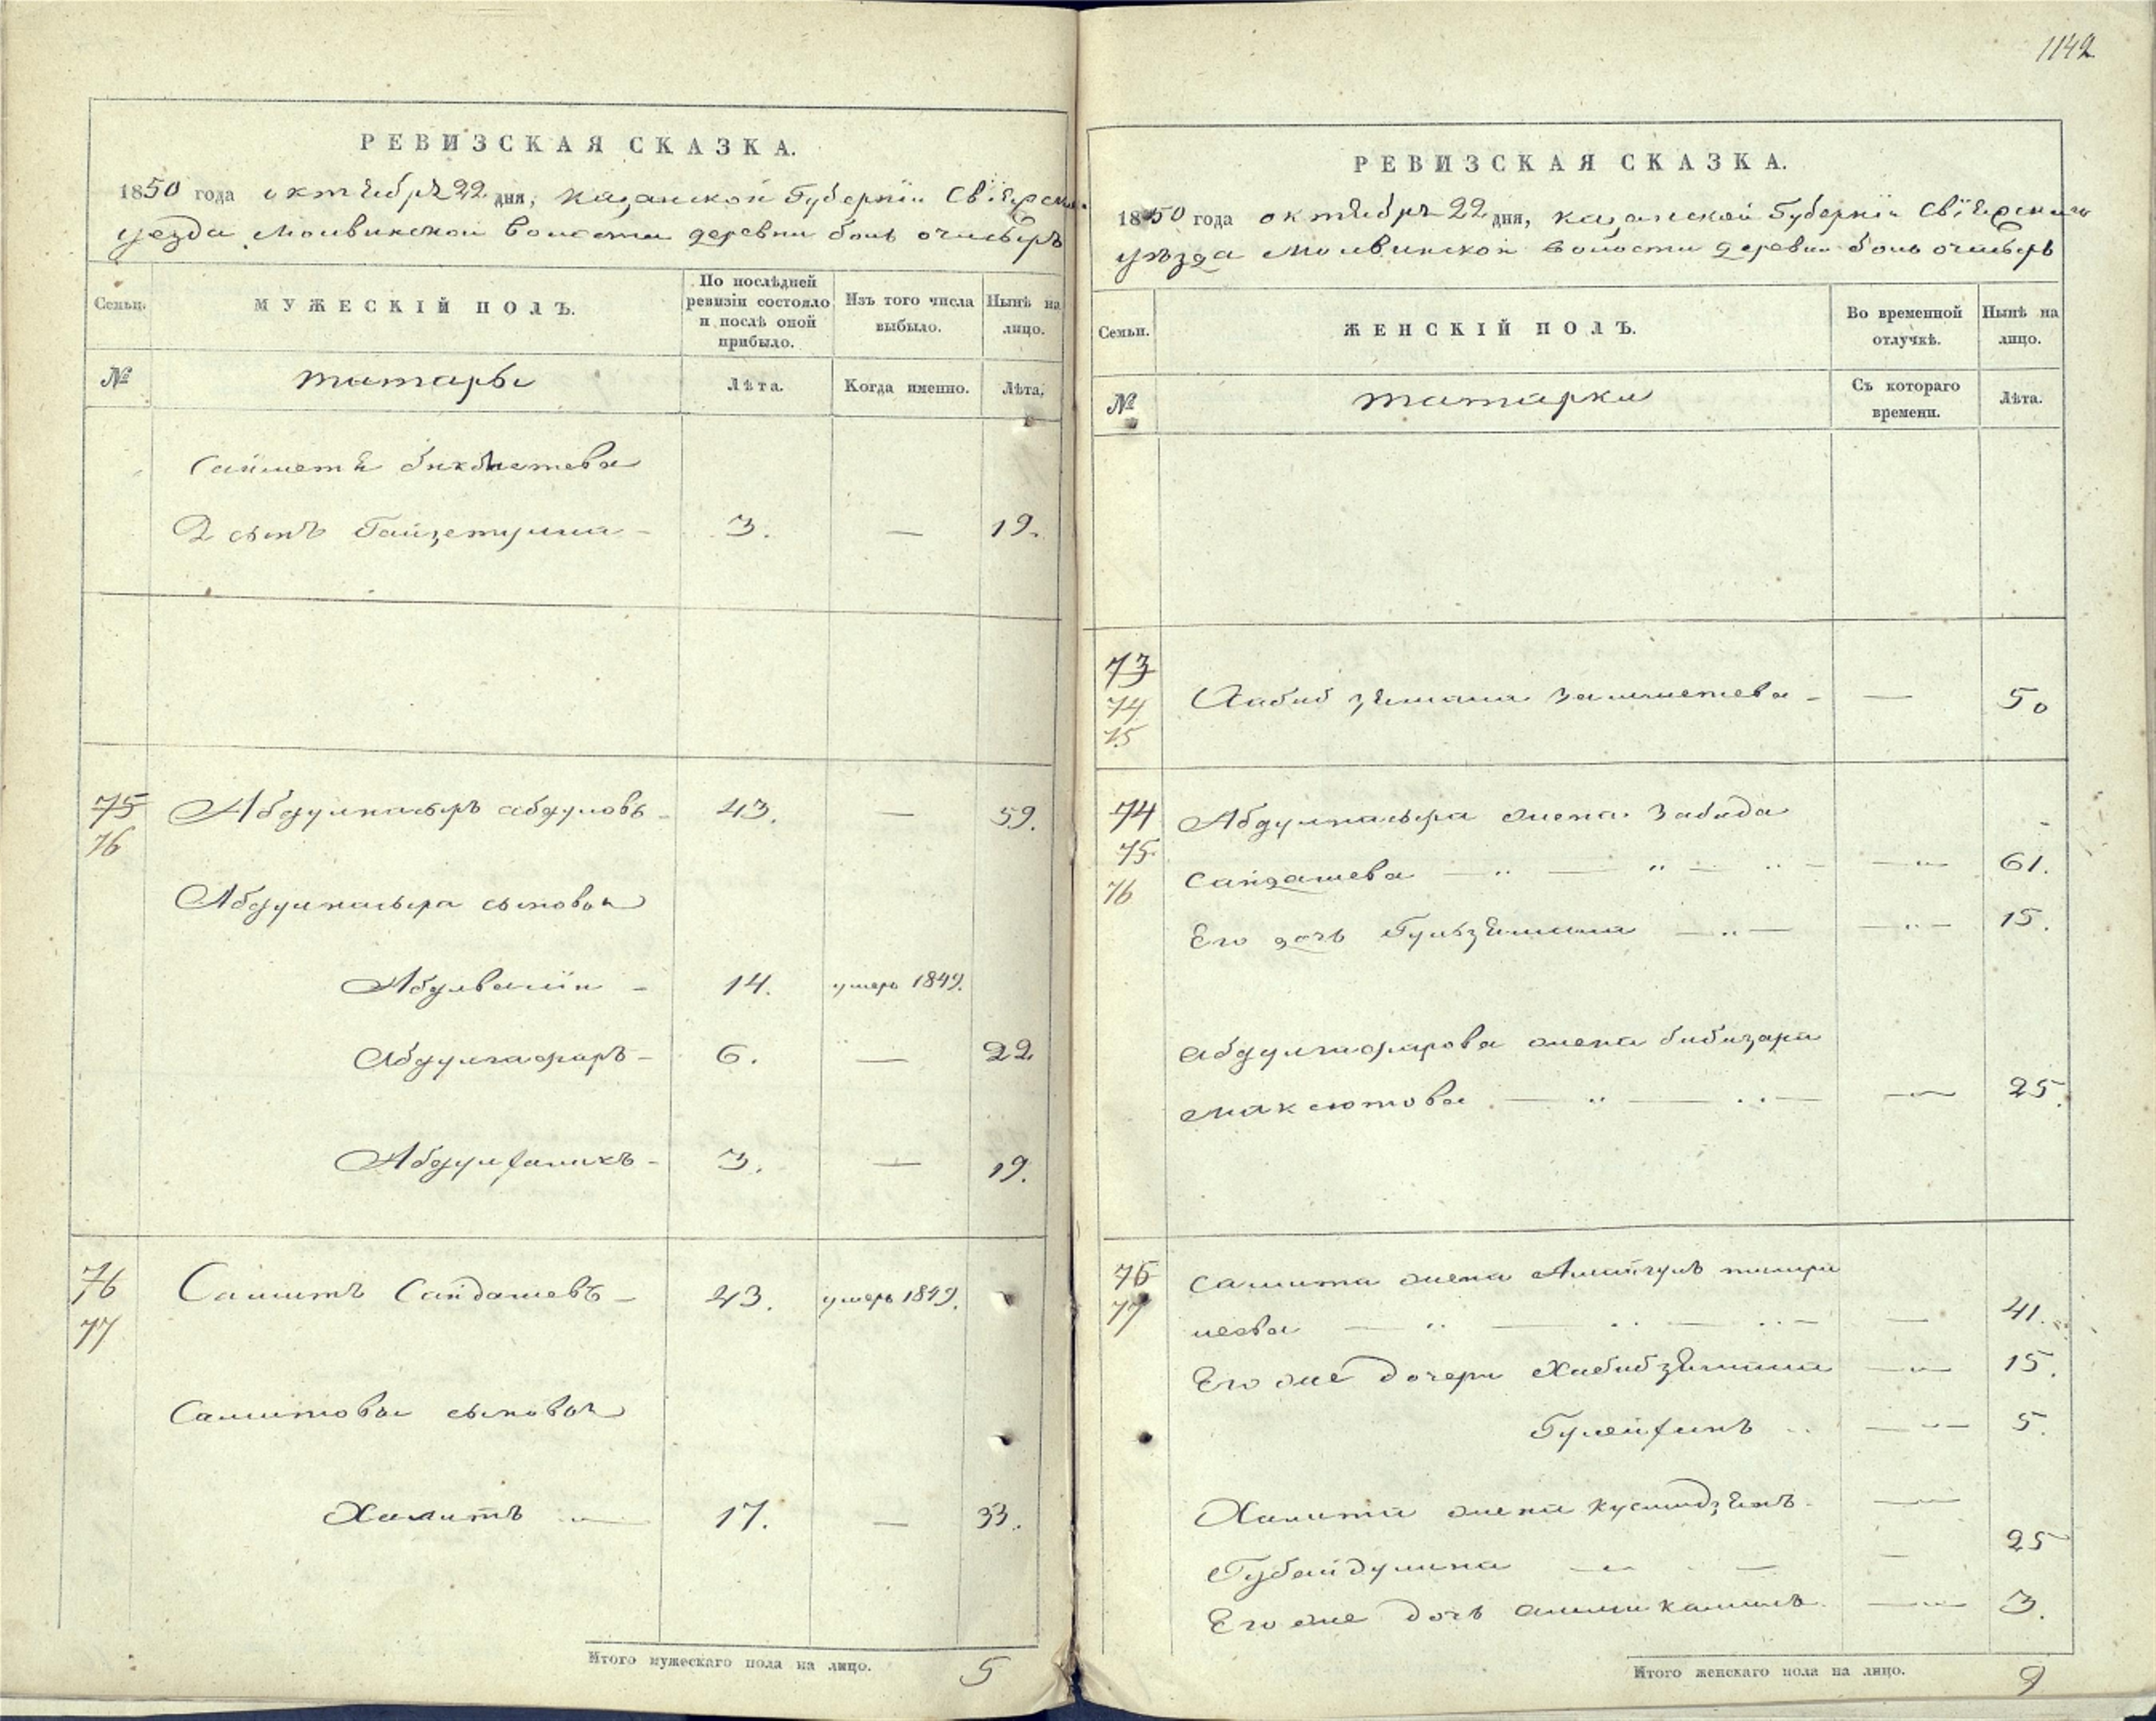 РЕВИЗСКАЯ СКАЗКА.
1850 года октября 22 дня, Казанской Губернїи Свїяжска
уезда Молвинской волости деревни боль ачасыръ
Семьи. МУЖЕСКІЙ ПОЛЪ. По послѣдней ревизіи состояло и послѣ оной прибыло. Изъ того числа выбыло. Нынѣ на лицо.
№ татары Лѣта. Когда именно. Лѣта.
Сайметя бикбметева
2 сынъ Гайзетулла - 3. — 19.
75 Абдулнасыръ абдуловъ - 43. — 59.
76
Абдулнасыра сыновья
Абдулвалїи - 14. умеръ 1849.
Абдулгафаръ - 6. — 22
Абдулхаликъ - 3. — 19.
76 Самитъ Сайдашевъ - 43. умеръ 1849.
77
Самитовы сыновья
Хамитъ 17. — 33.
Итого мужескаго пола на лицо. 5
1142
РЕВИЗСКАЯ СКАЗКА.
1850 года октября 22 дня, Казанской Губернїи Свїяжскаго
уѣзда Молвинской волости деревни боль ачасыръ
Семьи. ЖЕНСКІЙ ПОЛЪ. Во временной отлучкѣ. Нынѣ на лицо.
№ татарки Съ котораго времени. Лѣта.
73
74 Хабибзямала - — 50
75
74 Абдулнасыра жена Забида
75. Сайдашева — 61.
76
Его дочь Гульзямала — 15.
абдулгафарова жена бибизара
максютова — 25.
75 Самита жена Алмайгуль тимера
77 леева — 41.
Его же дочери Хабибзямала — 15.
5.
Хамита жена —
Губайдулина — 25
Его же дочь — 3.
Итого женскаго пола на лицо. 9